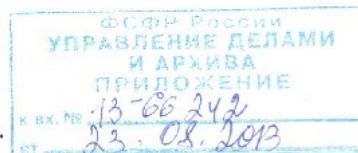 ФСФР России
УПРАВЛЕНИЕ ДЕЛАМИ
И АРХИВА
ПРИЛОЖЕНИЕ
К ВХ. № 13-66242
от 23. 08. 2013